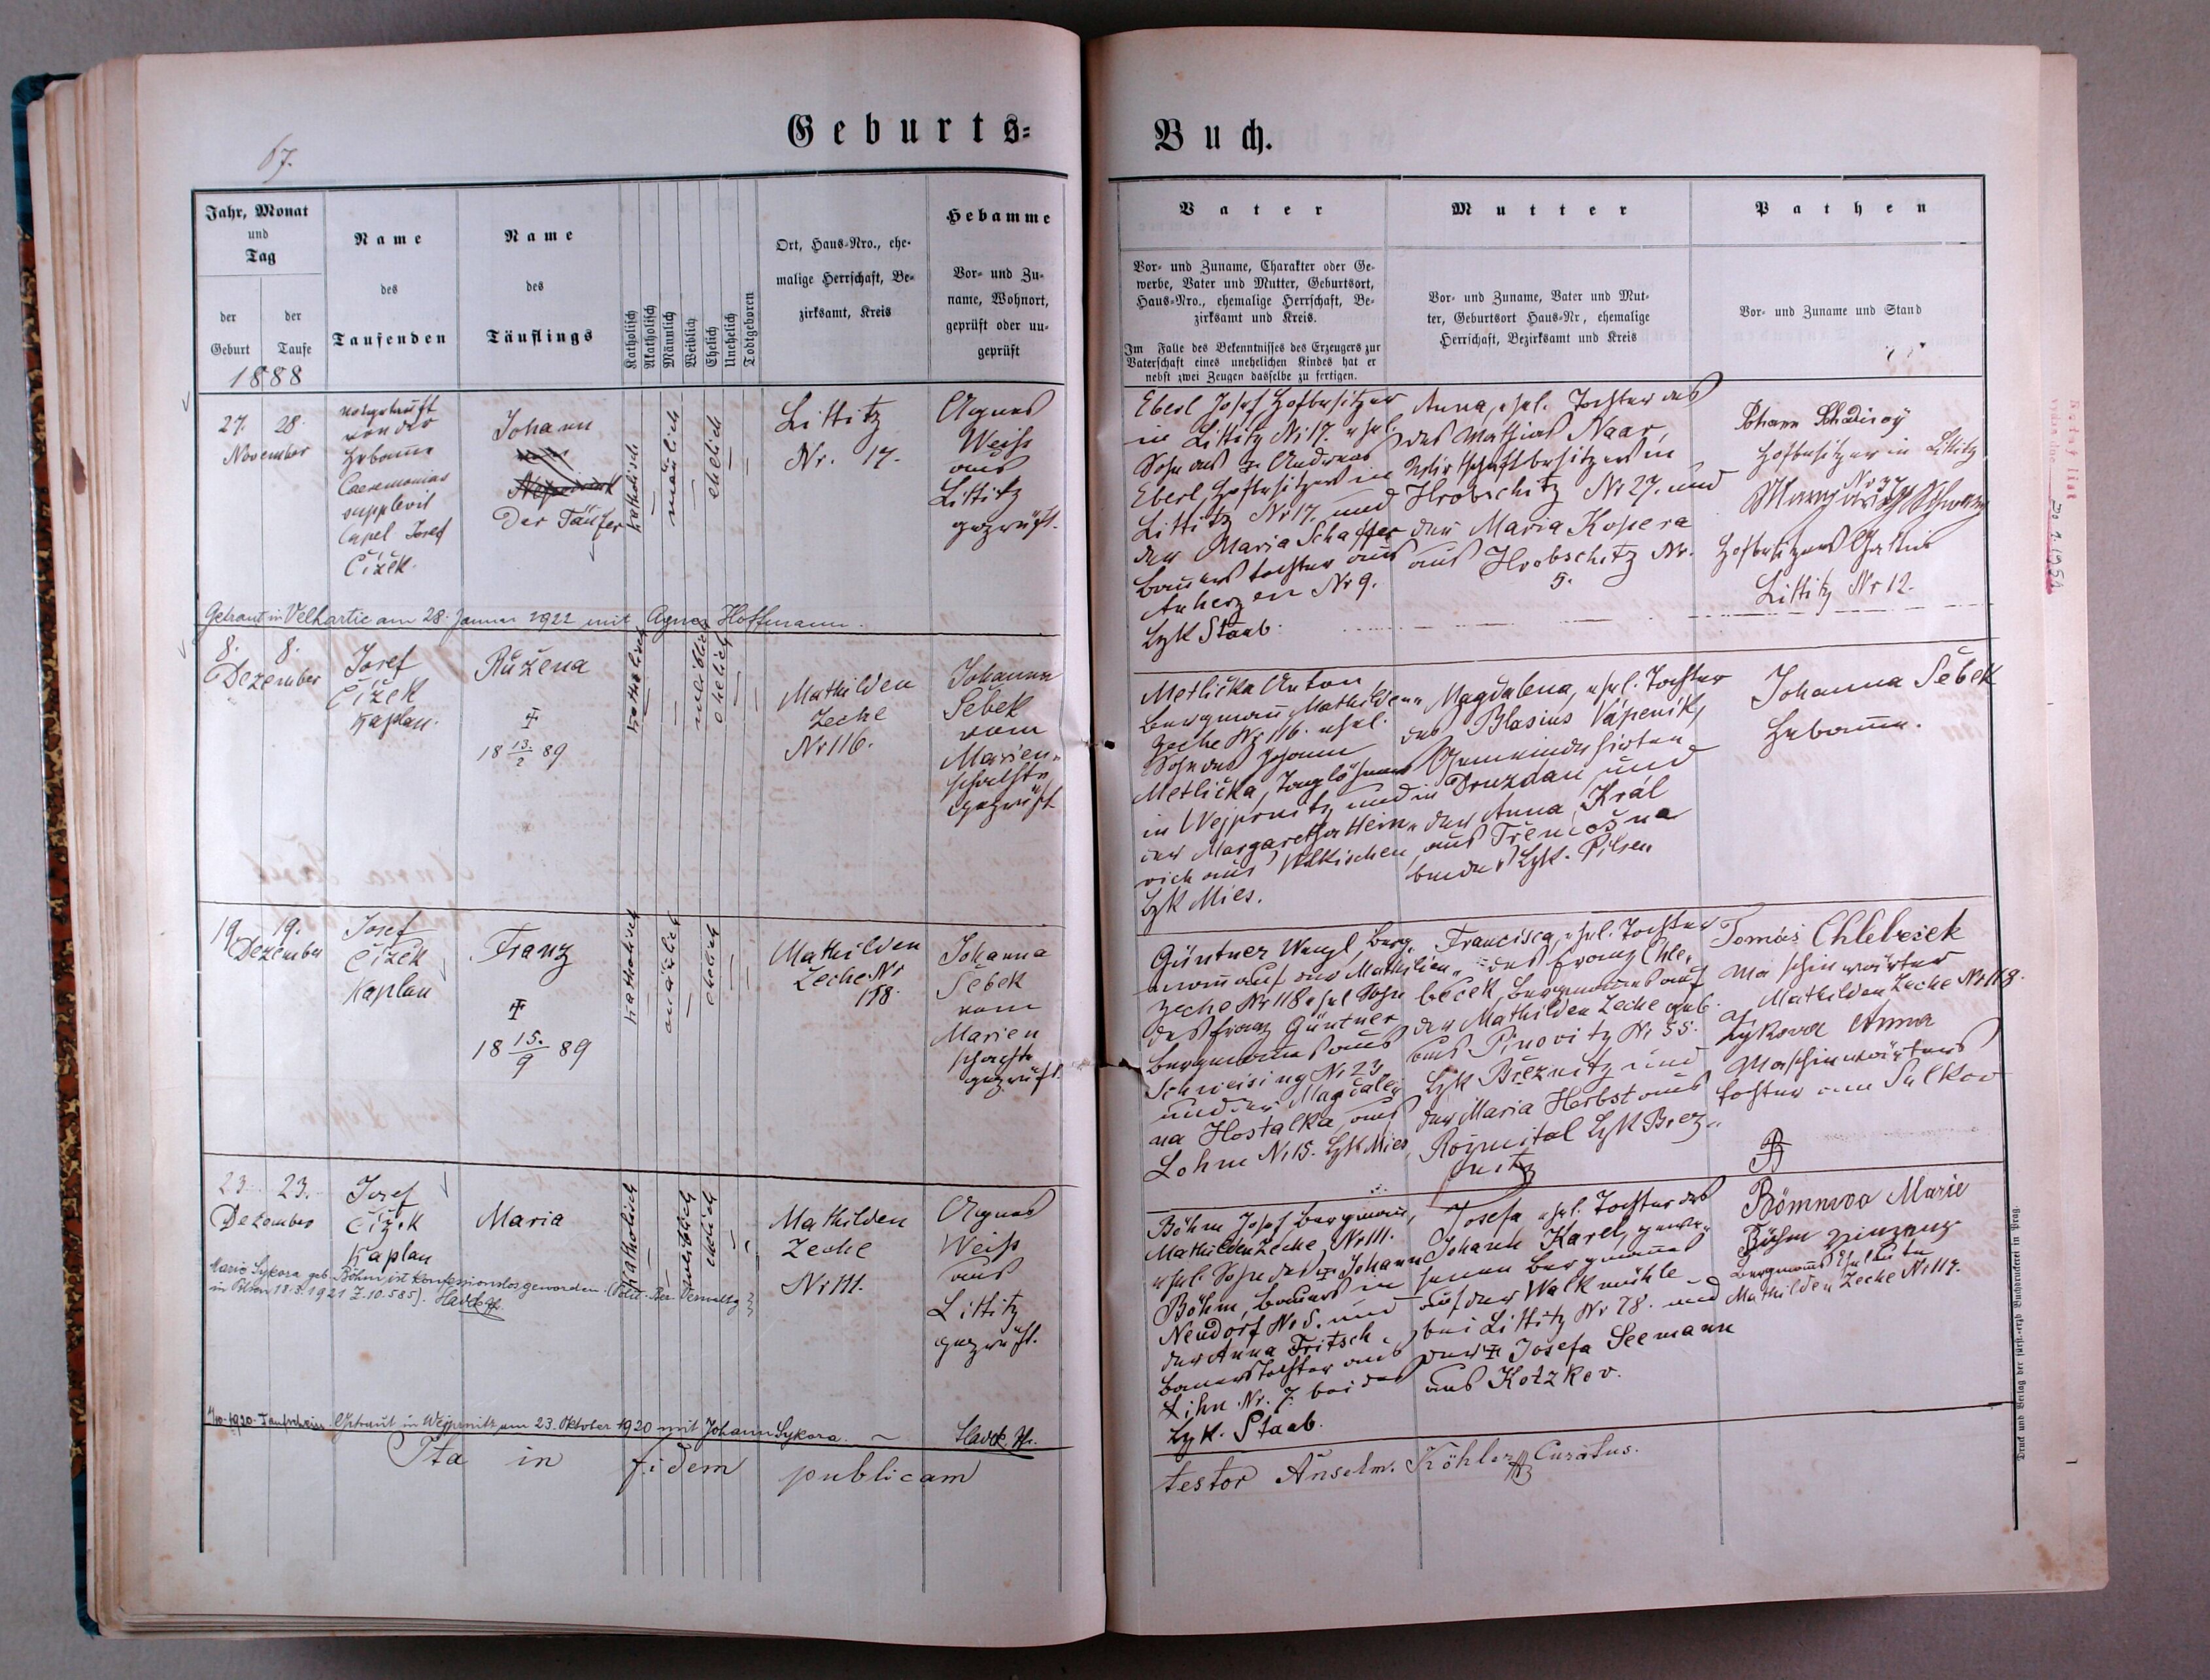 67.
Geburts=
Jahr, Monat
und
Tag
der
Geburt
der
Taufe
1888
Name
des
Taufenden
Name
des
Täuflings
Katholisch
Akatholisch
Männlich
Weiblich
Ehelich
Unehelich
Todtgeboren
Ort, Haus-Nro., ehe-
malige Herrschaft, Be-
zirksamt, Kreis
Hebamme
Vor- und Zu-
name, Wohnort,
geprüft oder un-
geprüft
27.
November
28.
notgetauft
von der
Hebamme
Caeremonias
supplevit
Capel. Josef
Čížek.
Johann
Nepomuk
Der Täufer
katholisch
mänlich
ehelich
Littitz
Nr. 17.
Agnes
Weiss
aus
Littitz
geprüft.
Getraut in Velhartic am 28. Januar 1922 mit Agnes Hoffmann.
8.
8.
Dezember
Josef
Čížek
Kaplan.
Růžena
18 13./2 89
katholisch
weiblich
ehelich
Mathilden
Zeche
Nr 116.
Johanna
Šebek
vom
Marien-
schachte
geprüft
19.
19.
Dezember
Josef
Čížek
Kaplan
Franz
18 15./9 89
katholisch
mänlich
ehelich
Mathilden
Zeche Nr
118.
Johanna
Šebek
vom
Marien
schachte
geprüft.
23.
23.
Dezember
Josef
Čížek
Kaplan
Maria
katholisch
weiblich
ehelich
Mathilden
Zeche
Nr 111.
Agnes
Weiss
aus
Littitz
geprüft.
Marie Sykora geb. Böhm ist konfessionslos geworden (Polit. Bez. Verwaltg
in Pilsen 18.3.1921 Z.10.585).
1920. Taufschein. Getraut in Wejprnitz am 23. Oktober 1920 mit Johann Sykora.
Ita in fidem publicam
Buch.
Vater
Vor- und Zuname, Charakter oder Ge-
werbe, Vater und Mutter, Geburtsort,
Haus-Nro., ehemalige Herrschaft, Be-
zirksamt und Kreis.
Im Falle des Bekenntnisses des Erzeugers zur
Vaterschaft eines unehelichen Kindes hat er
nebst zwei Zeugen dasselbe zu fertigen.
Mutter
Vor- und Zuname, Vater und Mut-
ter, Geburtsort Haus-Nr, ehemalige
Herrschaft, Bezirksamt und Kreis
Pathen
Vor- und Zuname und Stand
Eberl Josef Hofbesitzer
in Littitz Nr 17. ehel.
Sohn des Andreas
Eberl, Hofbesitzers in
Littitz Nr 17. und
der Maria Schaffer
Bauerstochter aus
Auherzen Nr 9.
Bzk Staab.
Anna, ehel. Tochter des
des Mathias Naar,
Wirtschaftsbesitzers in
Hrobschitz Nr 27. und
der Maria Kopera
aus Hrobschitz Nr.
5.
Johann
Hofbesitzer in Littitz
Nr 37
Hofbesitzers Gattin
Littitz Nr 12.
Metlička Anton
Bergmann Mathilden-
zeche Nr 116. ehel.
Sohn des Johann
Metlička, Taglöhners
in Wejprnitz und
der Margaretha Hein-
rich aus Wilkischen
Bzk Mies.
Magdalena, ehel. Tochter
des Blasius Vápeník,
Gemeindehirten
in Druzdau und
der Anna Král
aus Třemošna
beides Bzk. Pilsen
Johanna Šebek
Hebamme.
Güntner Wenzl, Berg-
mann auf der Mathilden-
zeche Nr 118 ehel Sohn
des Franz Güntner
Bergmannes aus
Schweising Nr 23
und der Magdale-
na Hostalka, aus
Lohm Nr 15. Bzk Mies
Francisca, ehel. Tochter
des Franz Chle-
beček, Bergmannes auf
der Mathilden Zeche geb.
aus Pinovitz Nr 55.
Bzk Březnitz und
der Maria Herbst aus
Rožmital Bzk Brez-
nitz
Tomáš Chlebeček
Maschinwärter
Mathilden Zeche Nr 118.
Sýkora Anna
Maschinwärters
tochter aus Sulkov
Böhm Josef Bergmann,
Mathilden Zeche Nr 111.
ehel. Sohn des Johann
Böhm, Bauers in
Neudorf Nr 5. und
der Anna Fritsch
Bauerstochter aus
Lihn Nr. 7. beides
Bzk. Staab.
Josefa ehel. Tochter des
Johann Karel, gewe-
senen Bergmannes
auf der Walkmühle
bei Littitz Nr 78. und
der Josefa Seemann
aus Kotzkov.
Marie
Böhm
Bergmanns Eheleute
Mathilden Zeche Nr 117.
testor Anselm. Köhler Curatus.
Druck und Verlag der fürst.-erzb Buchdruckerei in Prag.